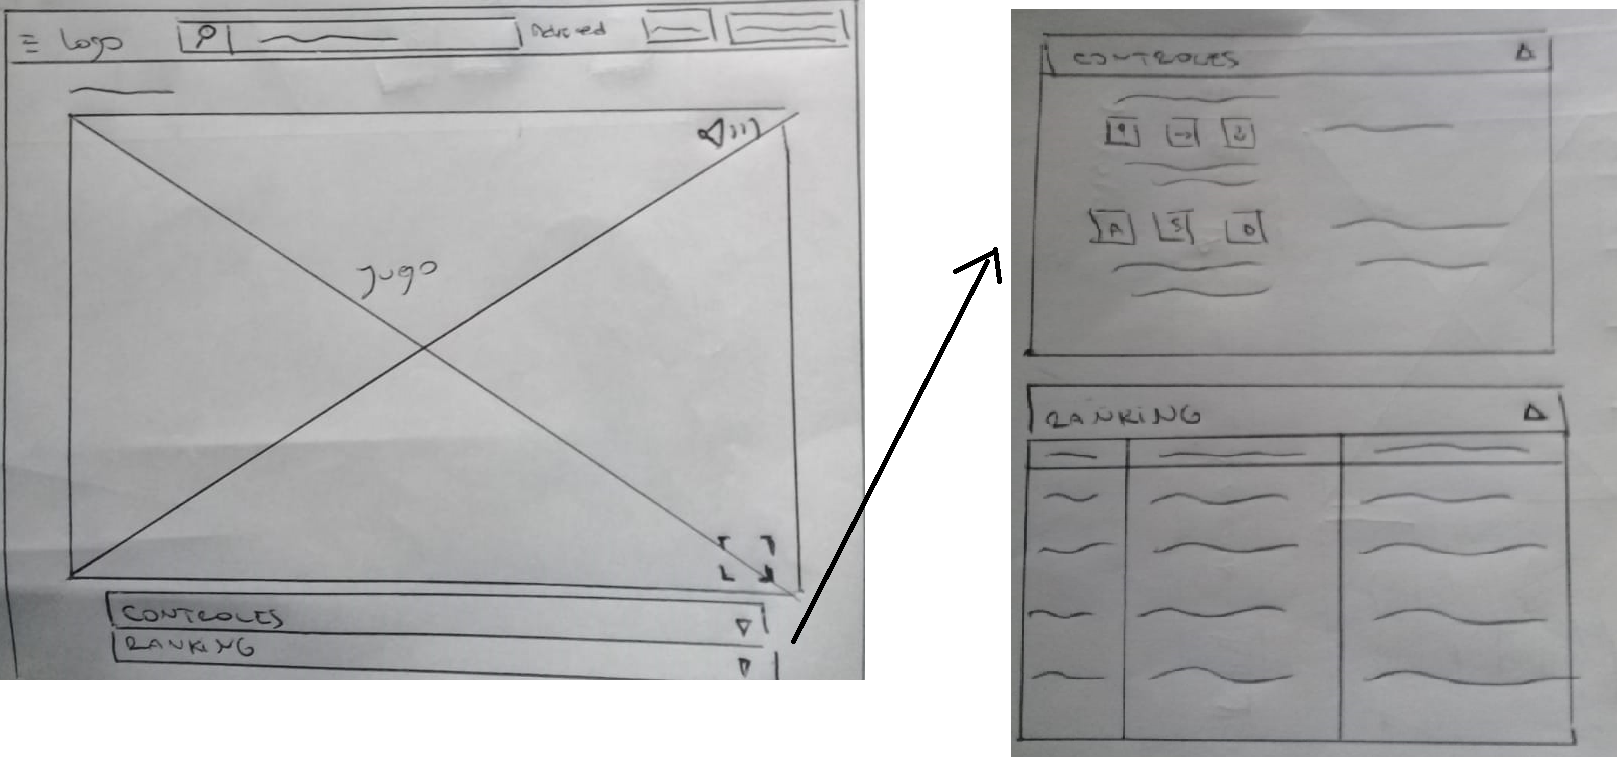 Logo
Jugo
CONTROLES
RANKING
CONTROLES
A S D
RANKING